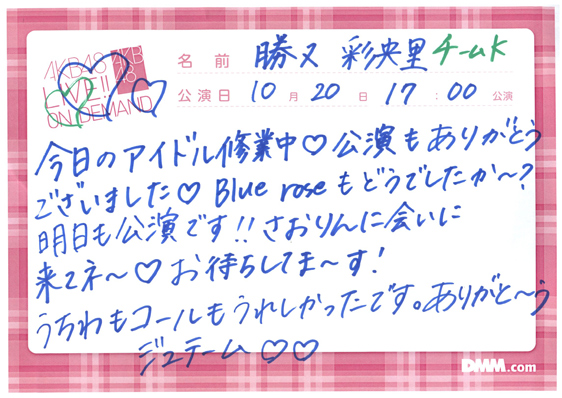 AKB48
LIVE!!
ON DEMAND
AKB48
名前 勝又 彩央里 チームK
公演日 10月20日 17:00 公演
今日のアイドル修業中♡公演もありがとう
ございました♡ Blue roseもどうでしたか〜?
明日も公演です!!さおりんに会いに
来てネ〜♡お待ちしてま〜す!
うちわもコールもうれしかったです。ありがと〜う
ジュテーム♡♡
DMM.com